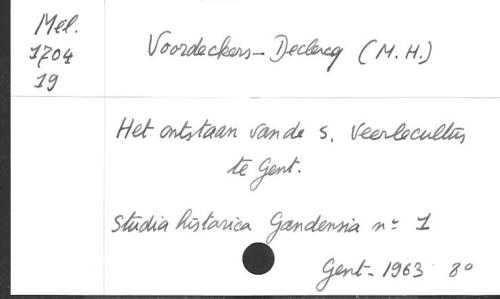 Mél.
1704
19
Voordeckers-Declercq (M. H.)
Het ontstaan van de S. Veerlecultus
te Gent.
Studia historica Gandensia nº 1
Gent - 1963 8º